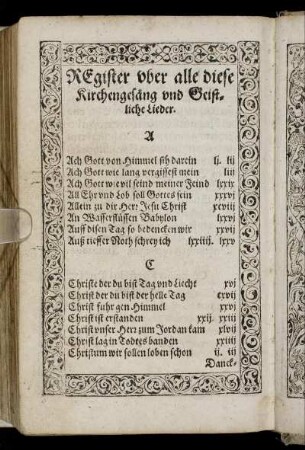 REgister vber alle diese
Kirchengesäng vnd Geist-
liche Lieder.
A
Ach Gott von Himmel sih darein lj. lii
Ach Gott wie lang vergissest mein liii
Ach Gott wie vil seind meiner Feind lxxix
All Ehr vnd Lob soll Gottes sein xxxvj
Allein zu dir Herr Jesu Christ xcviij
An Wasserflüssen Babylon lxxvj
Auff disen Tag so bedencken wir xxvj
Auß tieffer Noth schrey ich lxxiiij. lxxv
C
Christe der du bist Tag vnd Liecht xvj
Christ der du bist der helle Tag cxvij
Christ fuhr gen Himmel xxvj
Christ ist erstanden xxij. xxiij
Christ vnser Herr zum Jordan kam xlvij
Christ lag in Todtes banden xxiij
Christum wir sollen loben schon ij. iij
Danck-